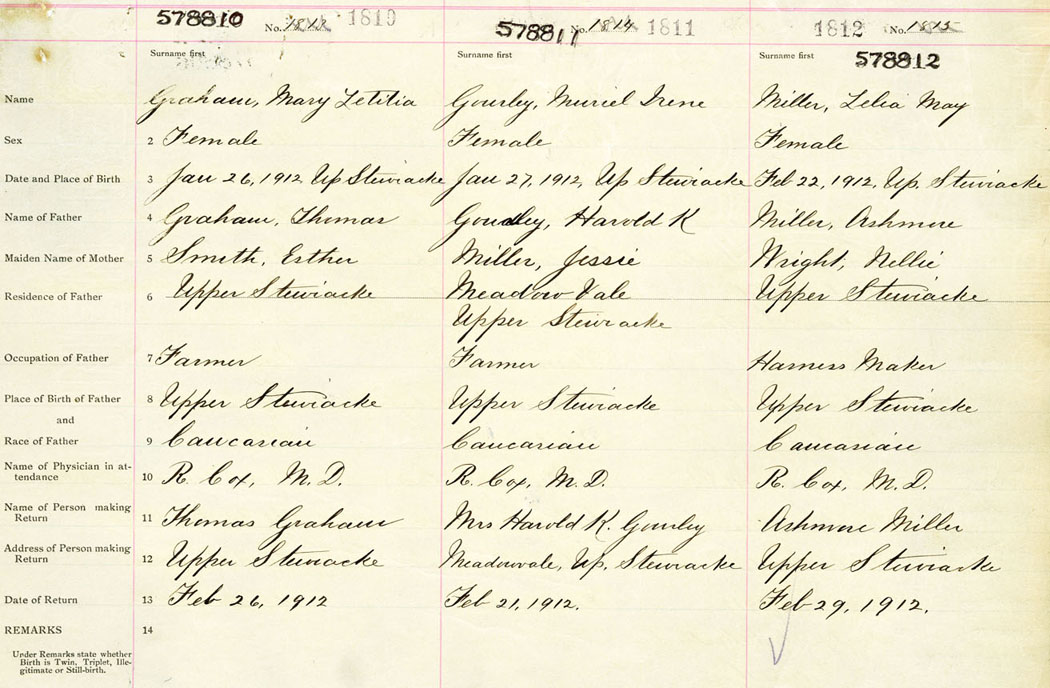 578810 No. 1813 1810 578811 No. 1814 1811 1812 No. 1815
Surname first Surname first Surname first 578812
Name Graham, Mary Letitia Gourley, Muriel Irene Miller, Lelia May
Sex 2 Female Female Female
Date and Place of Birth 3 Jan 26, 1912, Up Stewiacke Jan 27, 1912, Up Stewiacke Feb 22, 1912, Up. Stewiacke
Name of Father 4 Graham, Thomas Gourley, Harold K Miller, Ashmore
Maiden Name of Mother 5 Smith, Esther Miller, Jessie Wright, Nellie
Residence of Father 6 Upper Stewiacke Meadow Vale Upper Stewiacke
Upper Stewiacke
Occupation of Father 7 Farmer Farmer Harness Maker
Place of Birth of Father 8 Upper Stewiacke Upper Stewiacke Upper Stewiacke
and
Race of Father 9 Caucasian Caucasian Caucasian
Name of Physician in at-
tendance 10 R. Cox, M.D. R. Cox, M.D. R. Cox, M.D.
Name of Person making
Return 11 Thomas Graham Mrs Harold K. Gourley Ashmore Miller
Address of Person making
Return 12 Upper Stewiacke Meadowvale, Up. Stewiacke Upper Stewiacke
Date of Return 13 Feb 26, 1912 Feb 21, 1912. Feb 29, 1912.
REMARKS 14
Under Remarks state whether
Birth is Twin, Triplet, Ille-
gitimate or Still-birth.